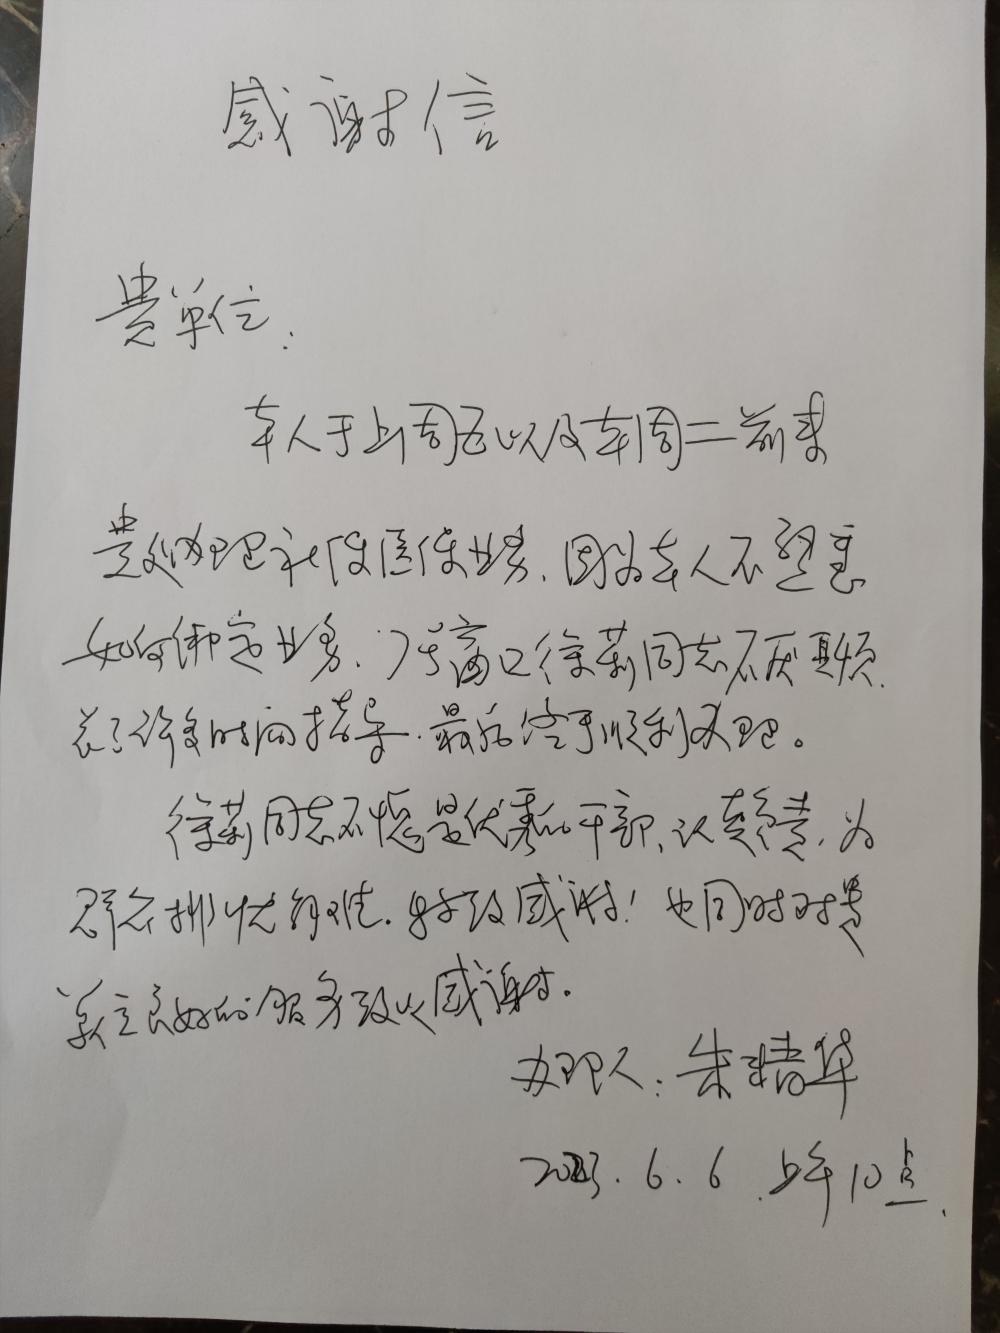 感谢信
贵单位:
本人于上周五以及本周二前来
贵处办理社保医保业务、因为本人不熟悉
如何绑定业务、7号窗口徐莉同志不厌其烦
花了许多时间指导.最后终于顺利办理。
徐莉同志不愧是优秀的干部、认真负责,为
群众排忧解难.特致感谢!也同时对贵
单位良好的服务致以感谢。
办理人:朱 华
2023.6.6.上午10点.